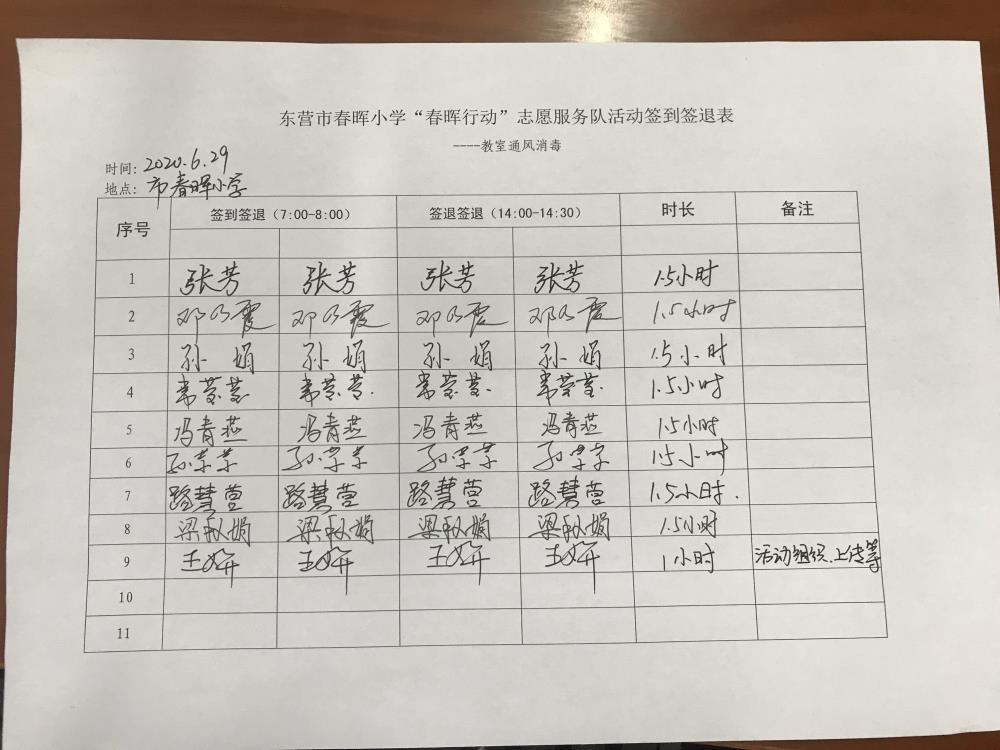 东营市春晖小学“春晖行动”志愿服务队活动签到签退表
----教室通风消毒
时间：2020.6.29
地点：市春晖小学
序号 签到签退（7:00-8:00） 签退签退（14:00-14:30） 时长 备注
1 张芳 张芳 张芳 张芳 1.5小时
2 邓乃霞 邓乃霞 邓乃霞 邓乃霞 1.5小时
3 孙娟 孙娟 孙娟 孙娟 1.5小时
4 1.5小时
5 冯青燕 冯青燕 冯青燕 冯青燕 1.5小时
6 1.5小时
7 路慧营 路慧营 路慧营 路慧营 1.5小时.
8 梁秋娟 梁秋娟 梁秋娟 梁秋娟 1.5小时
9 王妍 王妍 王妍 王妍 1小时 活动组织、上传等
10
11